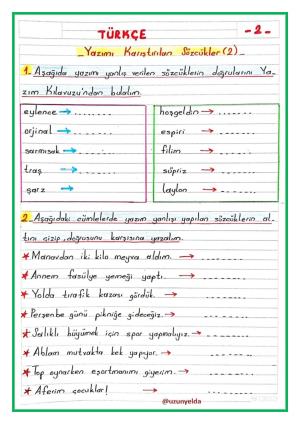 TÜRKÇE
-2-
Yazımı Karıştırılan Sözcükler (2)
1. Aşağıda yazımı yanlış verilen sözcüklerin doğrularını Ya-
zım Kılavuzu'ndan bulalım.
eylence → ..........
orjinal → ..........
sarmısak → ..........
traş → ..........
şarz → ..........
hoşgeldin → ..........
espiri → ..........
filim → ..........
süpriz → ..........
laylon → ..........
2. Aşağıdaki cümlelerde yazım yanlışı yapılan sözcüklerin al-
tını çizip, doğrusunu karşısına yazalım.
* Manavdan iki kilo meyva aldım. → ..........
* Annem fasülye yemeği yaptı. → ..........
* Yolda tırafik kazası gördük. → ..........
* Perşenbe günü pikniğe gideceğiz. → ..........
* Sağlıklı büyümek için spor yapmalıyız. → ..........
* Ablam mutvakta kek yapıyor. → ..........
* Top oynarken eşortmanımı giyerim. → ..........
* Aferim çocuklar! → ..........
@uzunyelda